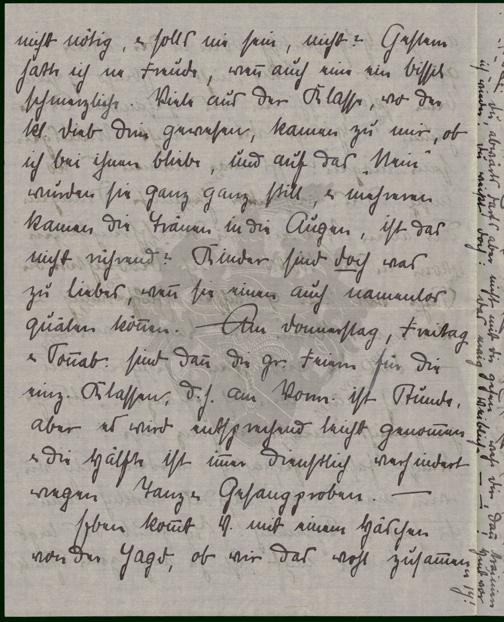 nicht nötig, & solls nie sein, nicht? Gestern
hatte ich ne Freude, weñ auch eine ein bissl
schmerzliche. Viele aus der Klasse, wo der
kl. Dieb drin gewesen, kamen zu mir, ob
ich bei ihnen bliebe, und auf das "Nein"
wurden sie ganz ganz still, & mehreren
kamen die Tränen in die Augen, ist das
nicht rührend? Kinder sind doch was
zu liebes, weñ sie einen auch namenlos
quälen köñen. — Am Donnerstag, Freitag
& Soñab. sind dañ die gr. Feiern für die
einz. Klassen, d.h. am Vorm. ist Stunde,
aber es wird entsprechend leicht genom̄en
& die Hälfte ist im̄er dienstlich verhindert
wegen Tanz & Gesangproben. —
Eben kom̄t V. mit einem Häschen
von der Jagd, ob wir das wohl zusam̄en